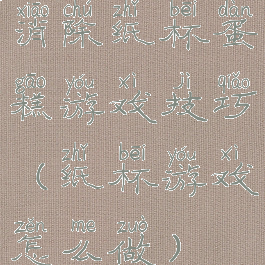 xiāo chú zhǐ bēi dàn
消除纸杯蛋
gāo yóu xì jì qiǎo
糕游戏技巧
zhǐ bēi yóu xì
（纸杯游戏
zěn me zuò
怎么做）